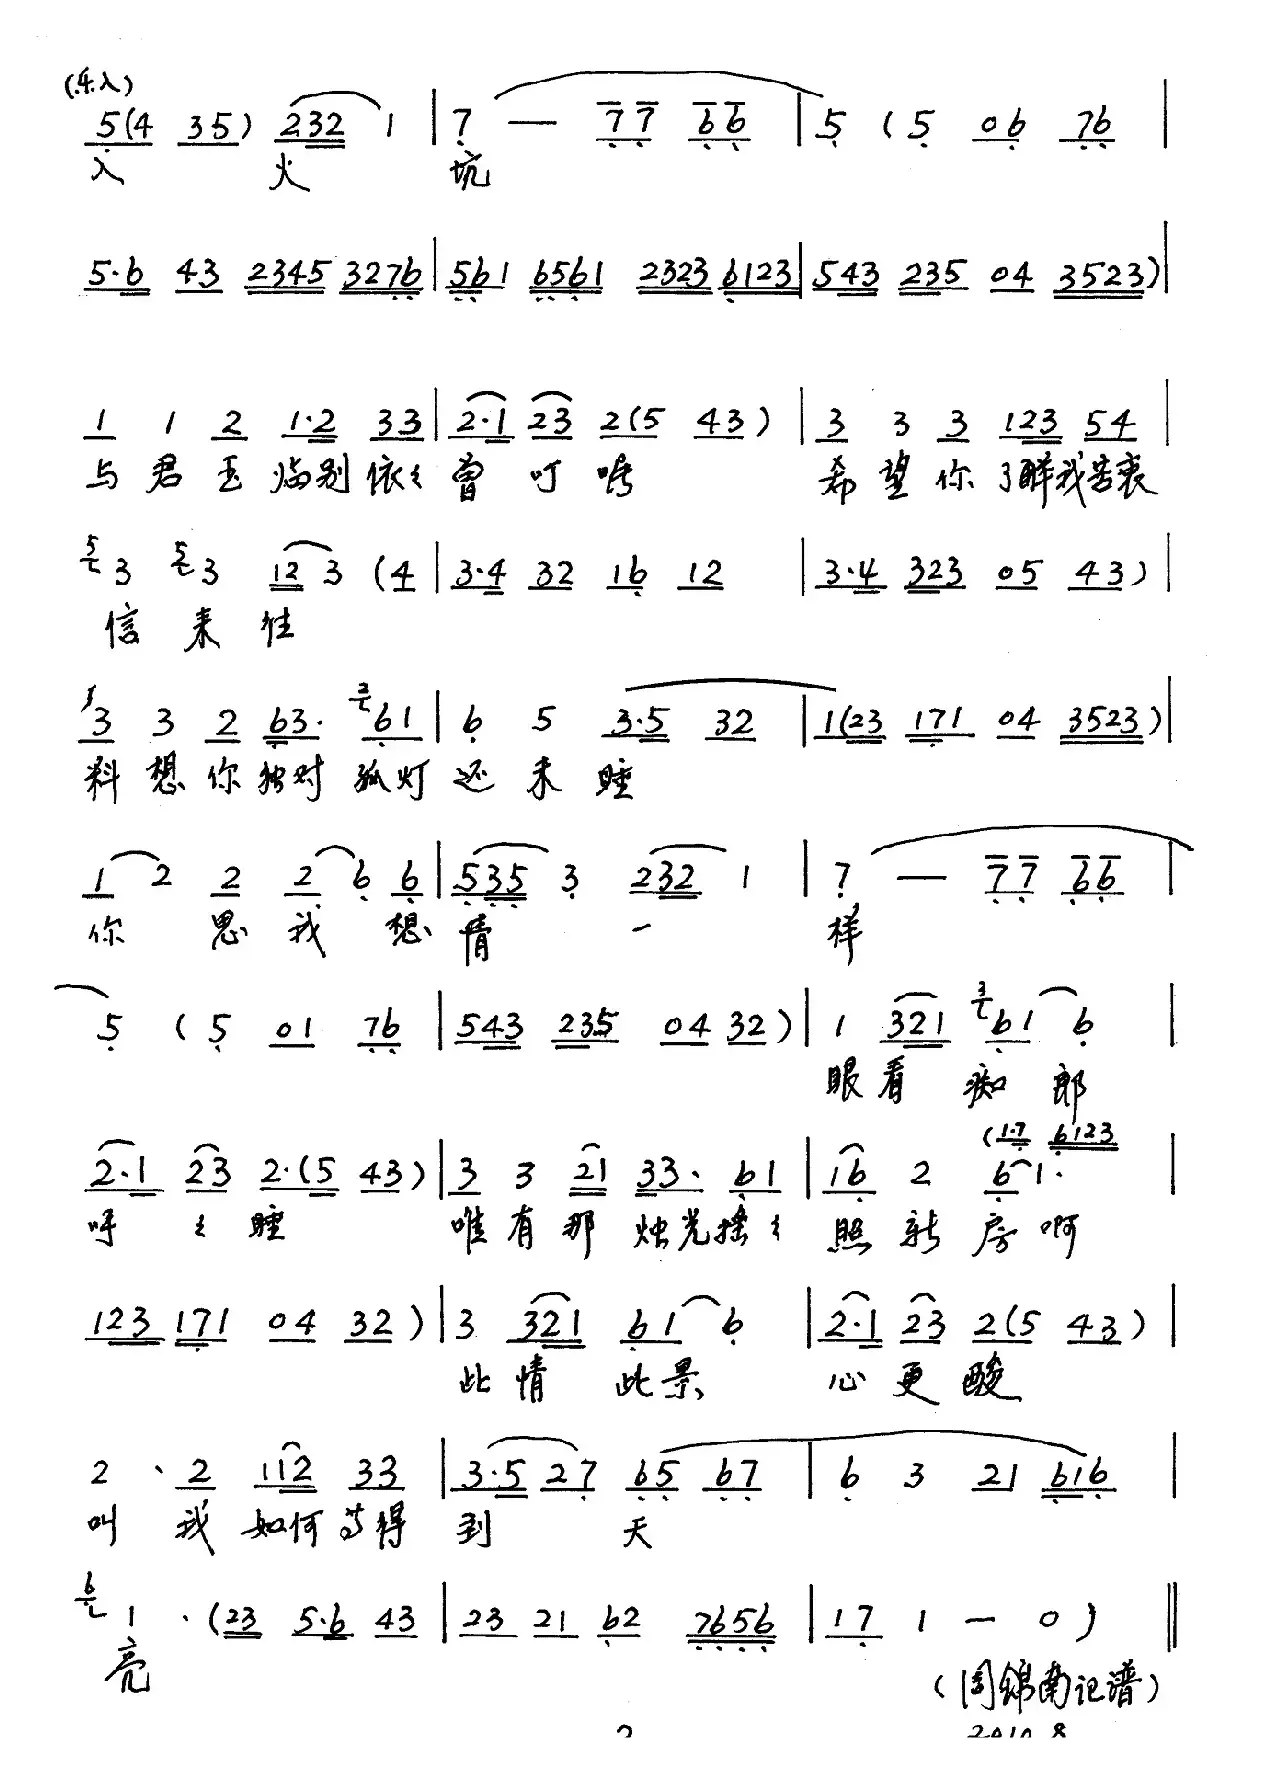 (乐入)
5(4 35) 232 1 | 7 — 77 66 | 5 (5 06 76 |
入 火 坑
5·6 43 2345 3276 | 561 6561 2323 6123 | 543 235 04 3523) |
1 1 2 1·2 33 | 2·1 23 2(5 43) | 3 3 3 123 54 |
与 君 玉 临别 依〻 曾 叮 咛 希 望 你 了解我苦衷
5 3 5 3 12 3 (4 | 3·4 32 16 12 | 3·4 323 05 43) |
信 来 往
3 3 2 63· 2 61 | 6 5 3·5 32 | 1(23 171 04 3523) |
料 想 你 独对 孤灯 还 未 睡
1 2 2 2 6 6 | 535 3 232 1 | 7 — 77 66 |
你 思 我 想 情 一 样
5 (5 01 76 | 543 235 04 32) | 1 321 3 61 6 |
眼 看 痴 郎
(1·7 6123
2·1 23 2·(5 43) | 3 3 21 33· 61 | 16 2 6 1· |
呼 〻 睡 唯 有 那 烛光摇〻 照 新 房 啊
123 171 04 32) | 3 321 61 6 | 2·1 23 2(5 43) |
此 情 此 景 心 更 酸
2 · 2 112 33 | 3·5 27 65 67 | 6 3 21 616 |
叫 我 如何 等得 到 天
6 1 · (23 5·6 43 | 23 21 62 7656 | 17 1 — 0) ‖
亮
(周锦南记谱)
2 2010.8